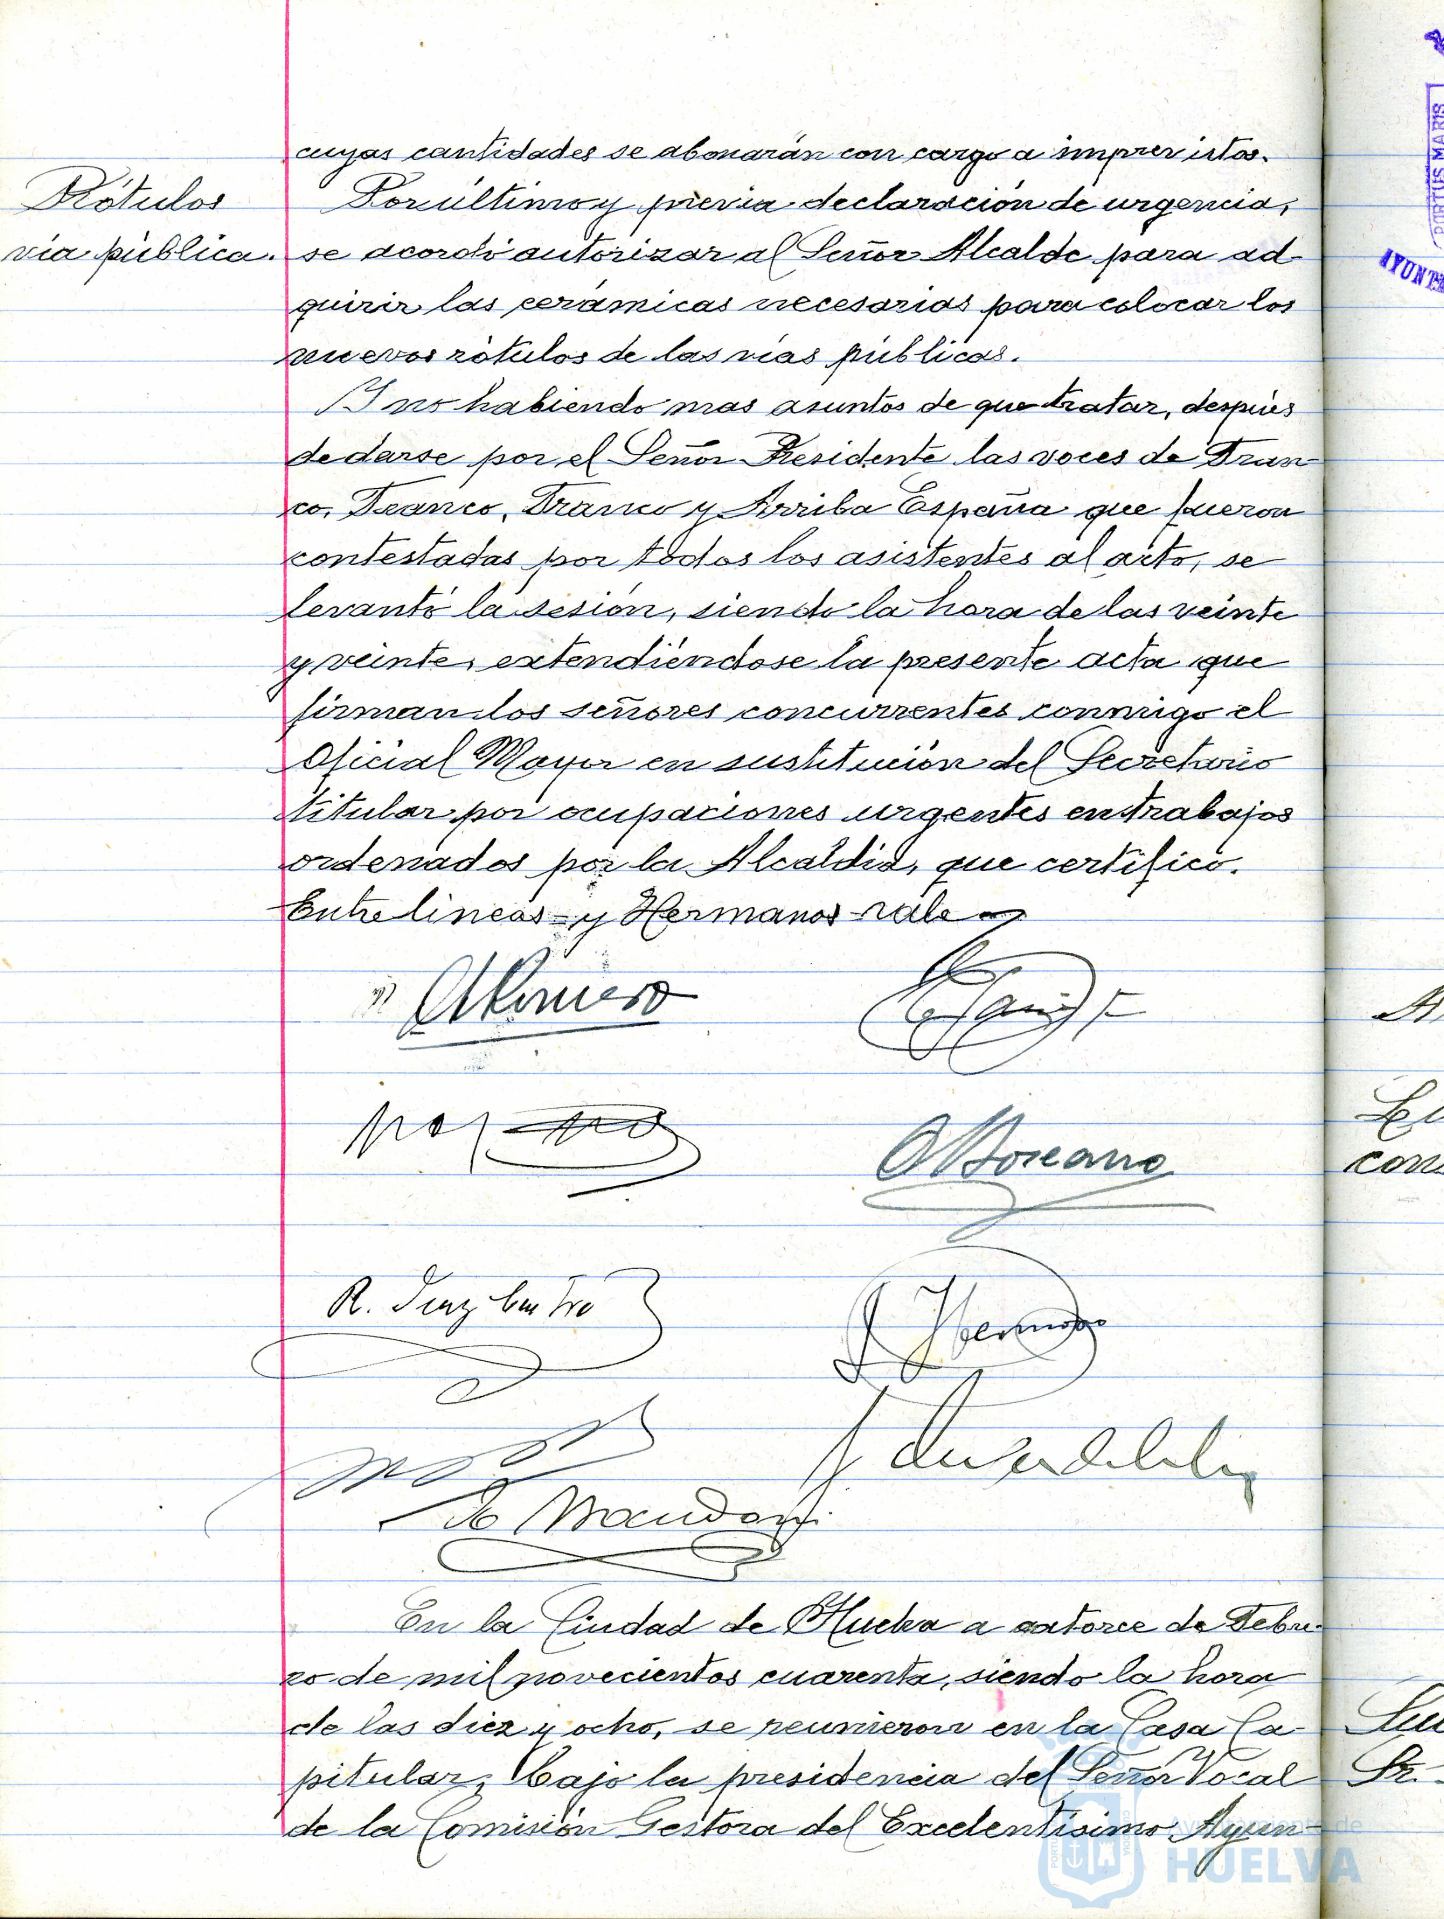 cuyas cantidades se abonarán con cargo a imprevistos.
Rótulos
vía pública.
Por último y previa declaración de urgencia,
se acordó autorizar al Señor Alcalde para ad-
quirir las cerámicas necesarias para colocar los
nuevos rótulos de las vías públicas.
Y no habiendo mas asuntos de que tratar, después
de darse por el Señor Presidente las voces de Fran-
co, Franco, Franco y Arriba España que fueron
contestadas por todos los asistentes al acto, se
levantó la sesión, siendo la hora de las veinte
y veinte, extendiéndose la presente acta que
firman los señores concurrentes conmigo el
Oficial Mayor en sustitución del Secretario
titular por ocupaciones urgentes en trabajos
ordenados por la Alcaldía, que certifico.
Entre lineas - y Hermanos - vale
R. Diaz
En la Ciudad de Huelva a catorce de Febre-
ro de mil novecientos cuarenta, siendo la hora
de las diez y ocho, se reunieron en la Casa Ca-
pitular, bajo la presidencia del Señor Vocal
de la Comisión Gestora del Excelentísimo Ayun-
Ayuntamiento de
HUELVA
PORTUS MARIS
AYUNTA